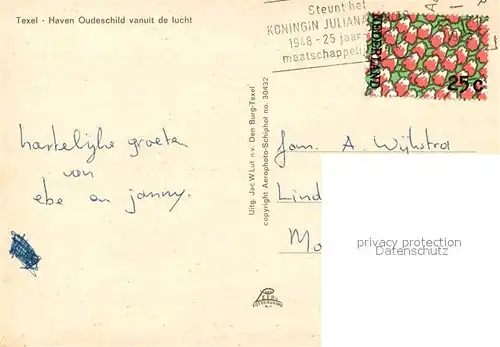 Texel - Haven Oudeschild vanuit de lucht
Steunt het
KONINGIN JULIANA
1948 - 25 jaar
maatschappelij
NEDERLAND
25 c
hartelijke groeten
van
ebe en janny.
Uitg. Jac. W. Lut n.v. Den Burg-Texel
copyright Aerophoto-Schiphol no. 30432
Fam. A. Wijkstra
Lind
Mo
privacy protection
Datenschutz